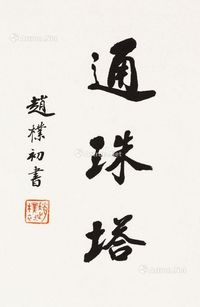 通珠塔
趙樸初書